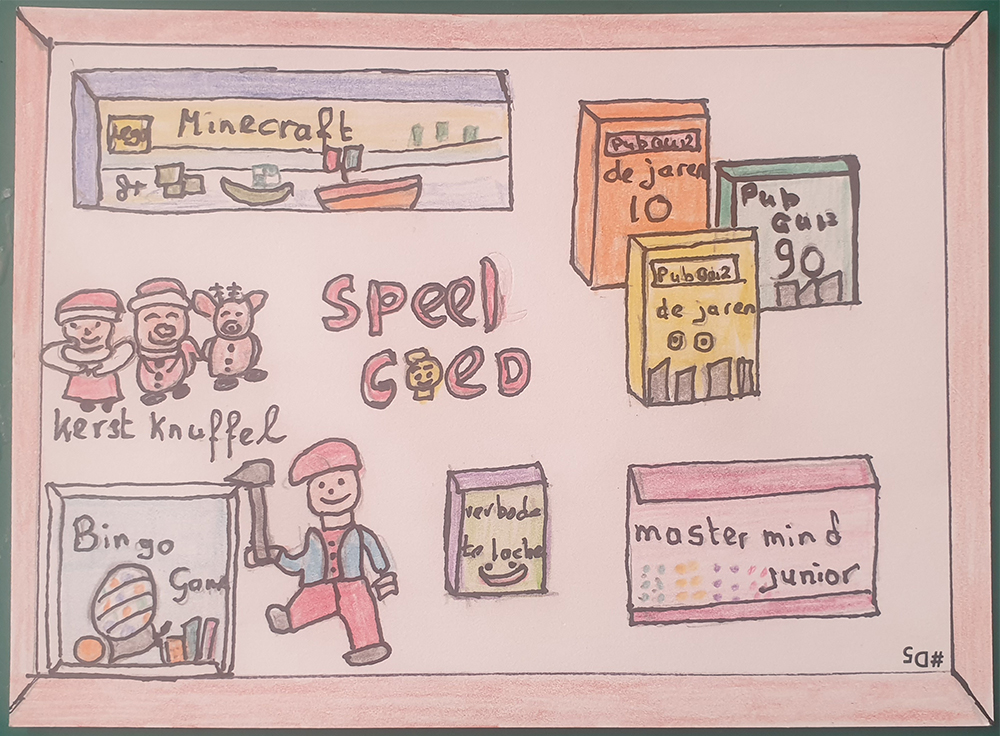 Lego
Minecraft
8+
PubQuiz
de jaren
10
Pub
Quiz
90
PubQuiz
de jaren
00
Speel
GOED
kerst knuffel
Bingo
Game
verbode
te lache
master mind
junior
#D5